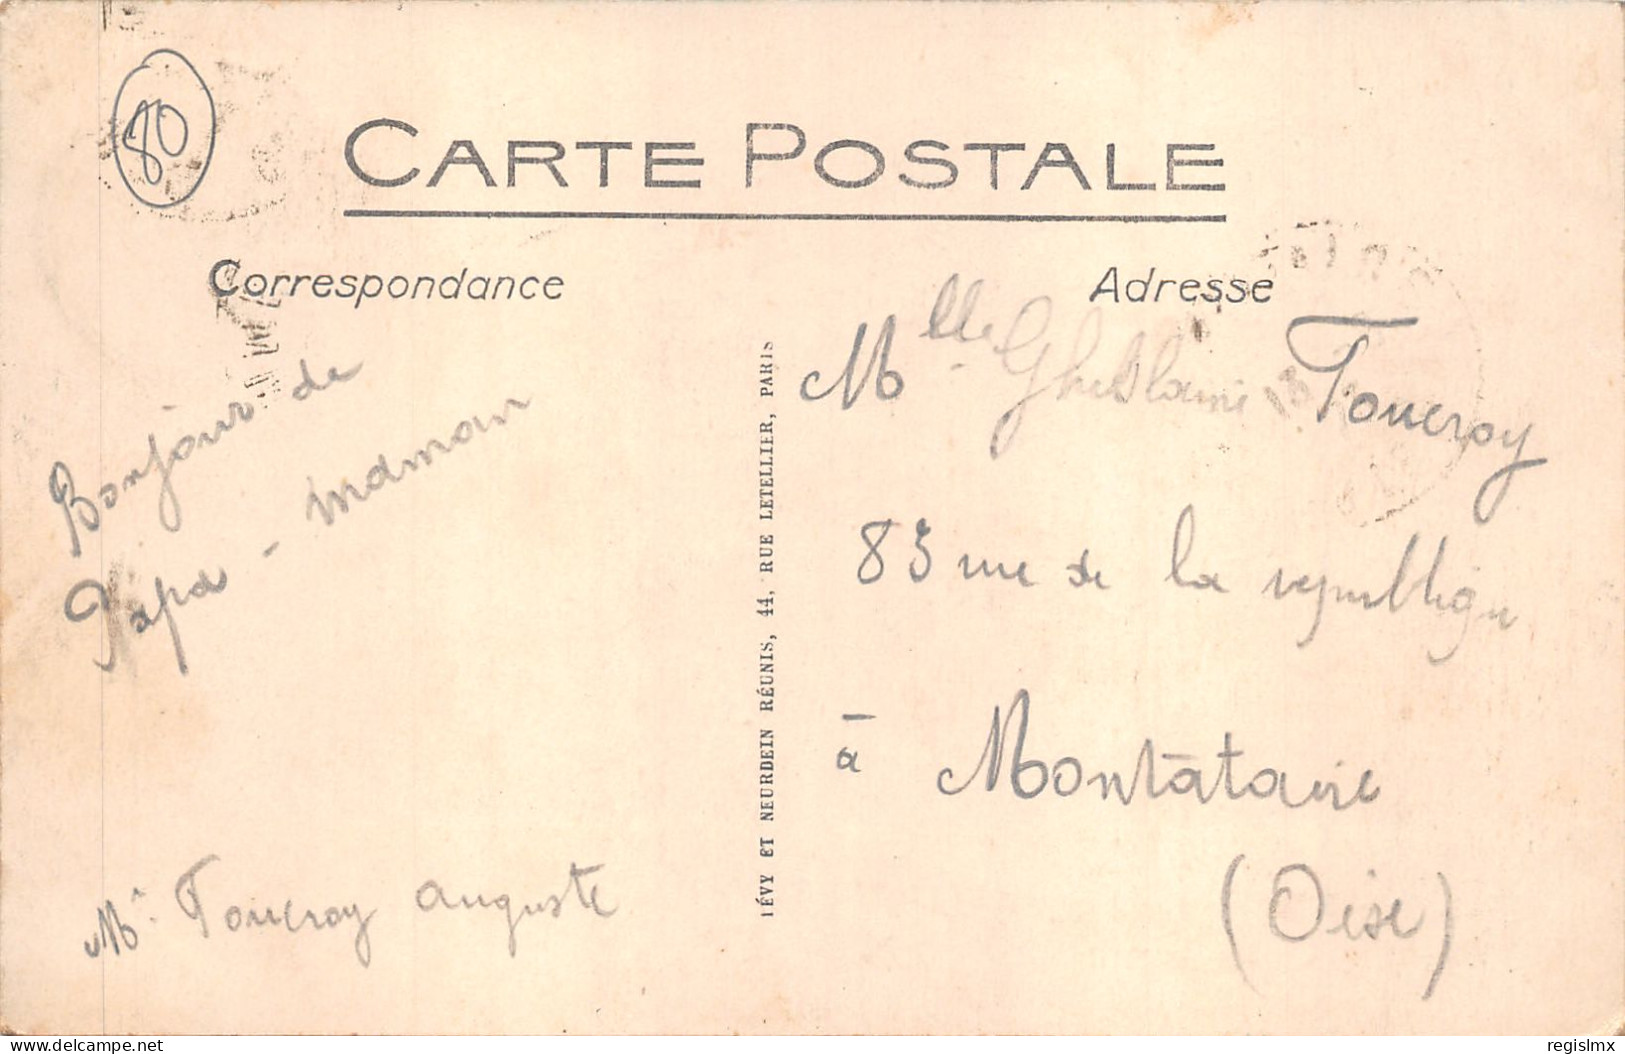 80
CARTE POSTALE
Correspondance
Adresse
Bonjour de
Papa - maman
Mr Toucroy auguste
LÉVY ET NEURDEIN RÉUNIS, 44, RUE LETELLIER, PARIS
Mlle Ghislaine Toucroy
83 rue de la republique
à Montataire
(Oise)
www.delcampe.net
regislmx